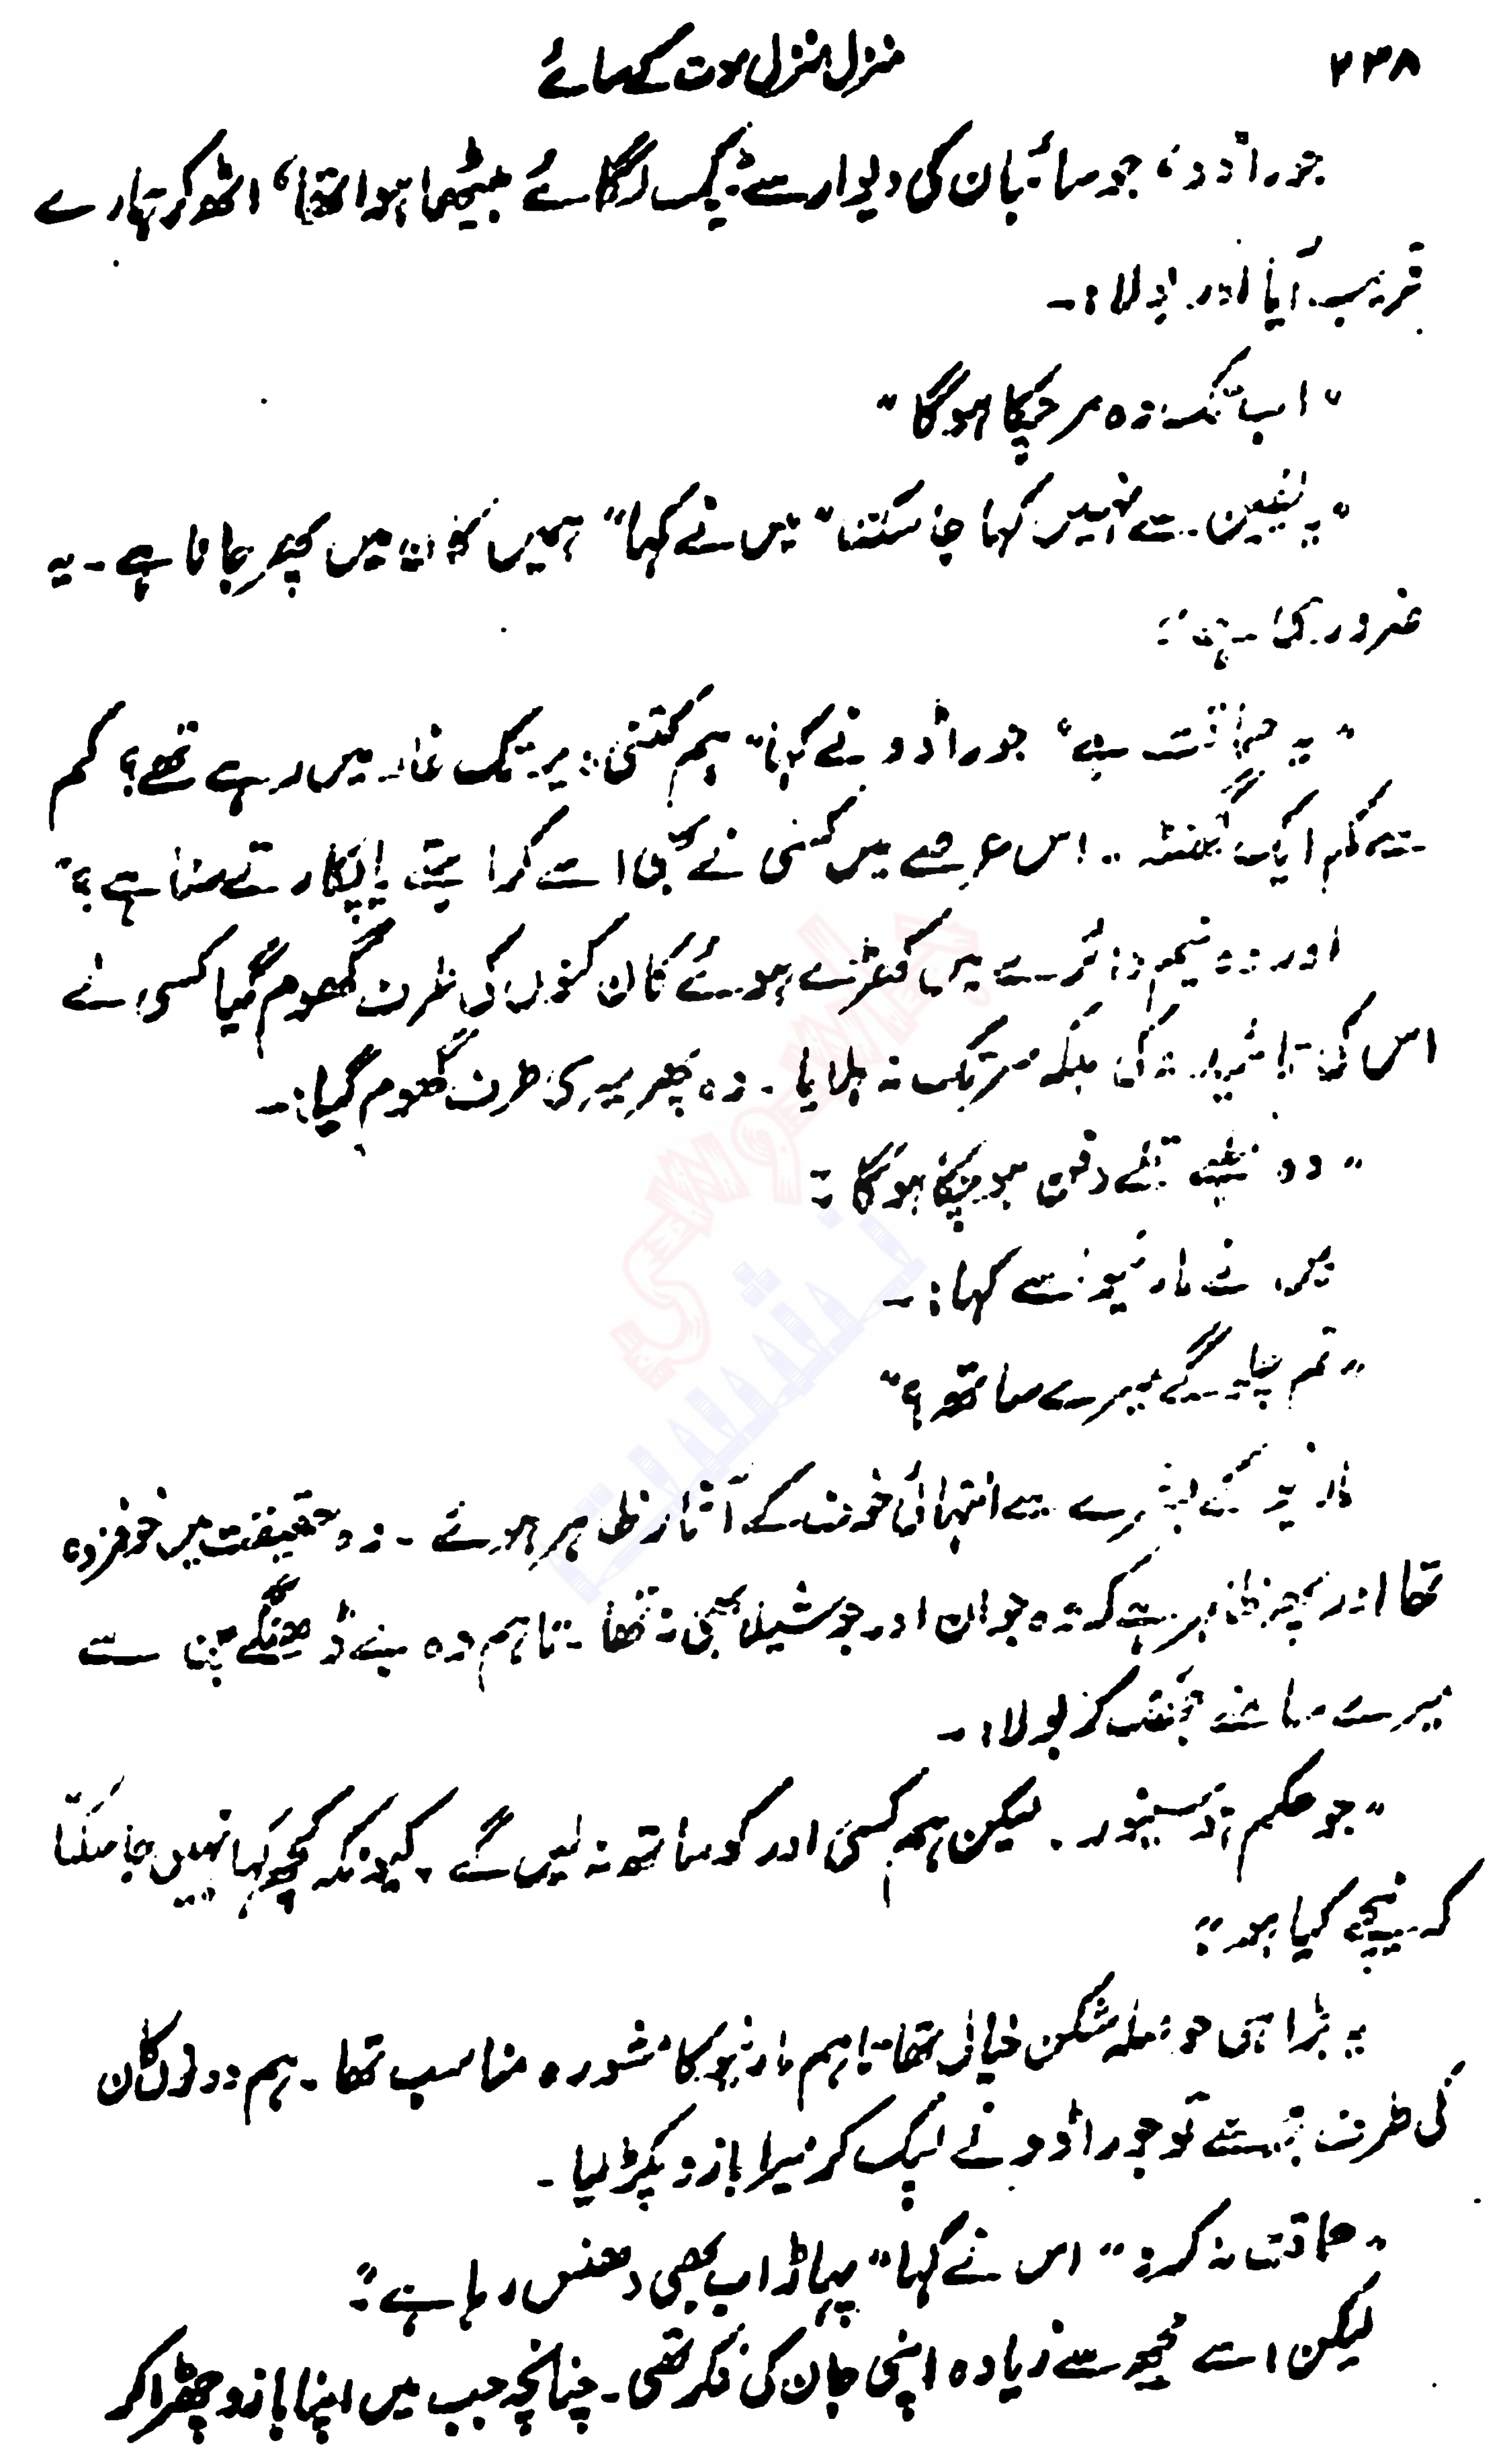 ۲۳۸ منزل منزل موت کے سائے
جوراڈو، جو سائبان کی دیوار سے ٹیک لگائے بیٹھا ہوا تھا، اٹھ کر ہمارے
قریب آیا اور بولا:۔
"اب تک وہ مر چکا ہوگا"
"یہ یقین سے نہیں کہا جا سکتا" میں نے کہا "ہمیں کان میں پھر جانا ہے۔ یہ
ضروری ہے"
"یہ حماقت ہے" جوراڈو نے کہا "ہم کتنی دیر تک غار میں رہے تھے؟ کم
سے کم ایک گھنٹہ۔ اس عرصے میں کسی نے بھی اسے کراہتے یا پکارتے سنا ہے؟"
اور وہ نیم دائرے میں کھڑے ہوئے کان کنوں کی طرف گھوم گیا کسی نے
اس کی تائید نہ کی بلکہ سر تک نہ ہلایا۔ وہ پھر میری طرف گھوم گیا:۔
"وہ ملبے تلے دفن ہو چکا ہوگا"
میں نے مارنیو سے کہا:۔
"تم چلو گے میرے ساتھ؟"
مارنیو کے بشرے سے انتہائی خوف کے آثار ظاہر ہوئے۔ وہ حقیقت میں خوفزدہ
تھا اور پھر ظاہر ہے کہ وہ جوان اور جوشیلا بھی نہ تھا۔ تاہم وہ بے ڈھنگے پن سے
میرے سامنے جھک کر بولا:۔
"جو حکم سینور۔ لیکن ہم کسی اور کو ساتھ نہ لیں گے۔ کیونکہ کچھ کہا نہیں جا سکتا
کہ نیچے کیا ہو"
یہ بڑا ہی حوصلہ شکن خیال تھا۔ تاہم مارنیو کا مشورہ مناسب تھا۔ ہم دونوں کان
کی طرف بڑھے تو جوراڈو نے لپک کر میرا بازو پکڑ لیا۔
"حماقت نہ کرو" اس نے کہا "پہاڑ اب بھی دھنس رہا ہے"۔
لیکن اسے مجھ سے زیادہ اپنی جان کی فکر تھی۔ چنانچہ جب میں اپنا بازو چھڑا کر